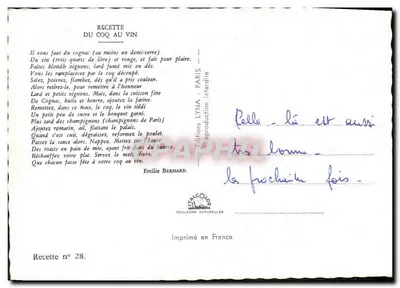 RECETTE
DU COQ AU VIN
Il vous faut du cognac (au moins un demi-verre)
Du vin (trois quarts de litre) et rouge, et fait pour plaire.
Faites blondir oignons, lard fumé mis en dés.
Vous les remplacerez par le coq découpé.
Salez, poivrez, flambez, dès qu'il a pris couleur.
Alors retirez-le, pour remettre à l'honneur
Lard et petits oignons. Mais, dans la cuisson fine
De Cognac, huile et beurre, ajoutez la farine.
Remettez, dans ce roux, le coq, le vin tiédi
Un petit peu de sucre et le bouquet garni.
Plus tard des champignons (champignons de Paris)
Ajoutez romarin, ail, flattant le palais.
Quand c'est cuit, dégraissez, reformez le poulet.
Passez la sauce dors. Nappez. Mettez
Des toasts en pain de mie, ayant frit dans du beurre
Réchauffez votre plat. Servez la mets
Que chacun fasse fête à votre coq au vin.
Emilie BERNARD.
Editions LYNA - PARIS
Reproduction interdite
Celle-là est aussi
très bonne -
la prochaine fois -
COULEURS NATURELLES
Imprimé en France
Recette n° 28.